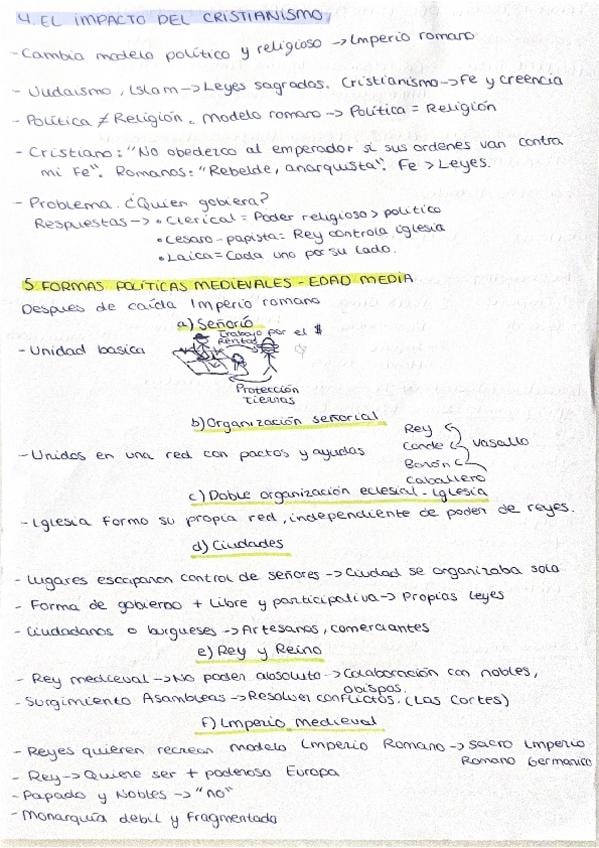 4. EL IMPACTO DEL CRISTIANISMO
- Cambia modelo político y religioso -> Imperio romano
- Judaísmo, Islam -> Leyes sagradas. Cristianismo -> Fe y creencia
- Política ≠ Religión. Modelo romano -> Política = Religión
- Cristiano: "No obedezco al emperador si sus ordenes van contra
mi Fe". Romanos: "Rebelde, anarquista". Fe > Leyes.
- Problema. ¿Quien gobiera?
Respuestas -> • Clerical = Poder religioso > político
• Cesaro-papista = Rey controla iglesia
• Laica = Cada uno por su lado.
5. FORMAS POLÍTICAS MEDIEVALES - EDAD MEDIA
Despues de caída Imperio romano
a) Señorío
- Unidad basica
Trabajo por el $
Rentas
Protección
Tierras
b) Organización señorial
- Unidos en una red con pactos y ayudas
Rey
Conde
Barón
Caballero
vasallo
c) Doble organización eclesial - Iglesia
- Iglesia formo su propia red, independiente de poder de reyes.
d) Ciudades
- Lugares escaparon control de señores -> Ciudad se organizaba sola
- Forma de gobierno + Libre y participativa -> Propias leyes
- Ciudadanos o burgueses -> Artesanos, comerciantes
e) Rey y Reino
- Rey medieval -> No poder absoluto -> Colaboración con nobles,
obispos.
- Surgimiento Asambleas -> Resolver conflictos. (Las Cortes)
f) Imperio medieval
- Reyes quieren recrear modelo Imperio Romano -> Sacro Imperio
Romano Germanico
- Rey -> Quiere ser + poderoso Europa
- Papado y Nobles -> "no"
- Monarquía debil y fragmentada